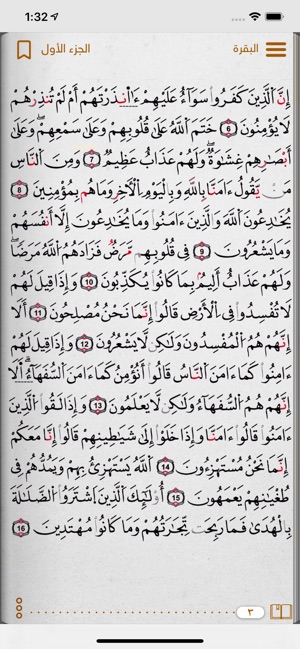 1:32
البقرة
الجزء الأول
إِنَّ ٱلَّذِينَ كَفَرُوا۟ سَوَآءٌ عَلَيْهِمْ ءَأَنذَرْتَهُمْ أَمْ لَمْ تُنذِرْهُمْ
لَا يُؤْمِنُونَ 6 خَتَمَ ٱللَّهُ عَلَىٰ قُلُوبِهِمْ وَعَلَىٰ سَمْعِهِمْ ۖ وَعَلَىٰٓ
أَبْصَٰرِهِمْ غِشَٰوَةٌ ۖ وَلَهُمْ عَذَابٌ عَظِيمٌ 7 وَمِنَ ٱلنَّاسِ
مَن يَقُولُ ءَامَنَّا بِٱللَّهِ وَبِٱلْيَوْمِ ٱلْءَاخِرِ وَمَا هُم بِمُؤْمِنِينَ 8
يُخَٰدِعُونَ ٱللَّهَ وَٱلَّذِينَ ءَامَنُوا۟ وَمَا يَخْدَعُونَ إِلَّآ أَنفُسَهُمْ
وَمَا يَشْعُرُونَ 9 فِى قُلُوبِهِم مَّرَضٌ فَزَادَهُمُ ٱللَّهُ مَرَضًا ۖ
وَلَهُمْ عَذَابٌ أَلِيمٌۢ بِمَا كَانُوا۟ يَكْذِبُونَ 10 وَإِذَا قِيلَ لَهُمْ
لَا تُفْسِدُوا۟ فِى ٱلْأَرْضِ قَالُوٓا۟ إِنَّمَا نَحْنُ مُصْلِحُونَ 11 أَلَآ
إِنَّهُمْ هُمُ ٱلْمُفْسِدُونَ وَلَٰكِن لَّا يَشْعُرُونَ 12 وَإِذَا قِيلَ لَهُمْ
ءَامِنُوا۟ كَمَآ ءَامَنَ ٱلنَّاسُ قَالُوٓا۟ أَنُؤْمِنُ كَمَآ ءَامَنَ ٱلسُّفَهَآءُ ۗ أَلَآ
إِنَّهُمْ هُمُ ٱلسُّفَهَآءُ وَلَٰكِن لَّا يَعْلَمُونَ 13 وَإِذَا لَقُوا۟ ٱلَّذِينَ
ءَامَنُوا۟ قَالُوٓا۟ ءَامَنَّا وَإِذَا خَلَوْا۟ إِلَىٰ شَيَٰطِينِهِمْ قَالُوٓا۟ إِنَّا مَعَكُمْ
إِنَّمَا نَحْنُ مُسْتَهْزِءُونَ 14 ٱللَّهُ يَسْتَهْزِئُ بِهِمْ وَيَمُدُّهُمْ فِى
طُغْيَٰنِهِمْ يَعْمَهُونَ 15 أُو۟لَٰٓئِكَ ٱلَّذِينَ ٱشْتَرَوُا۟ ٱلضَّلَٰلَةَ
بِٱلْهُدَىٰ فَمَا رَبِحَت تِّجَٰرَتُهُمْ وَمَا كَانُوا۟ مُهْتَدِينَ 16
٣